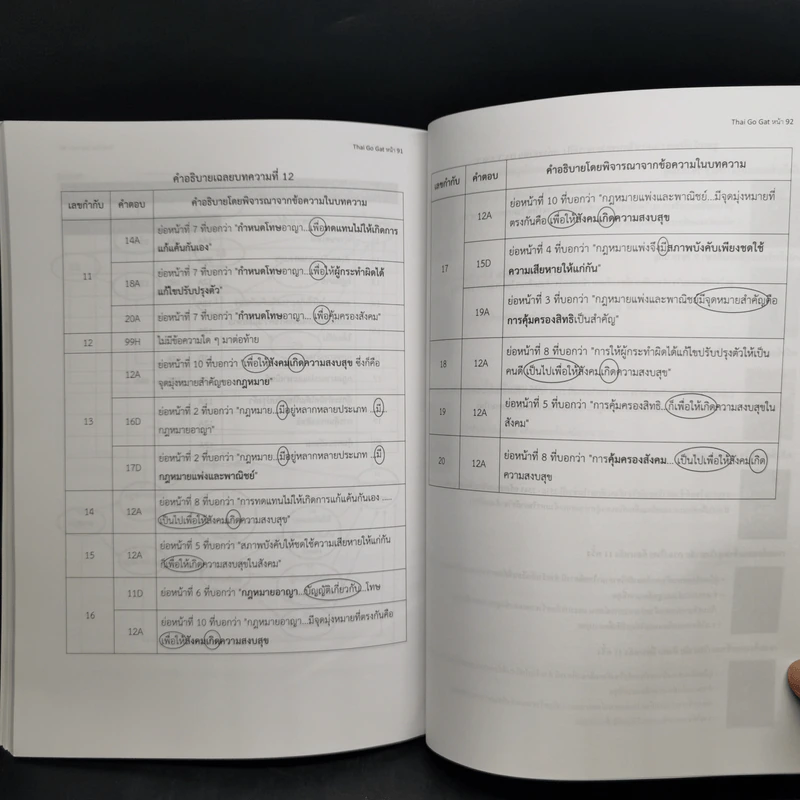 Thai Go Gat หน้า 91
คำอธิบายเฉลยบทความที่ 12
เลขกำกับ คำตอบ คำอธิบายโดยพิจารณาจากข้อความในบทความ
11
14A ย่อหน้าที่ 7 ที่บอกว่า "กำหนดโทษอาญา...เพื่อทดแทนไม่ให้เกิดการ
แก้แค้นกันเอง"
18A ย่อหน้าที่ 7 ที่บอกว่า "กำหนดโทษอาญา...เพื่อให้ผู้กระทำผิดได้
แก้ไขปรับปรุงตัว"
20A ย่อหน้าที่ 7 ที่บอกว่า "กำหนดโทษอาญา...เพื่อคุ้มครองสังคม"
12 99H ไม่มีข้อความใด ๆ มาต่อท้าย
13
12A ย่อหน้าที่ 10 ที่บอกว่า "เพื่อให้สังคมเกิดความสงบสุข ซึ่งก็คือ
จุดมุ่งหมายสำคัญของกฎหมาย"
16D ย่อหน้าที่ 2 ที่บอกว่า "กฎหมาย...มีอยู่หลากหลายประเภท ...มี
กฎหมายอาญา"
17D ย่อหน้าที่ 2 ที่บอกว่า "กฎหมาย...มีอยู่หลากหลายประเภท ...มี
กฎหมายแพ่งและพาณิชย์"
14 12A ย่อหน้าที่ 8 ที่บอกว่า "การทดแทนไม่ให้เกิดการแก้แค้นกันเอง .....
เป็นไปเพื่อให้สังคมเกิดความสงบสุข"
15 12A ย่อหน้าที่ 5 ที่บอกว่า "สภาพบังคับให้ชดใช้ความเสียหายให้แก่กัน
ก็เพื่อให้เกิดความสงบสุขในสังคม"
16
11D ย่อหน้าที่ 6 ที่บอกว่า "กฎหมายอาญา...บัญญัติเกี่ยวกับ...โทษ
12A ย่อหน้าที่ 10 ที่บอกว่า "กฎหมายอาญา...มีจุดมุ่งหมายที่ตรงกันคือ
เพื่อให้สังคมเกิดความสงบสุข
Thai Go Gat หน้า 92
เลขกำกับ คำตอบ คำอธิบายโดยพิจารณาจากข้อความในบทความ
17
12A ย่อหน้าที่ 10 ที่บอกว่า "กฎหมายแพ่งและพาณิชย์...มีจุดมุ่งหมายที่
ตรงกันคือ เพื่อให้สังคมเกิดความสงบสุข
15D ย่อหน้าที่ 4 ที่บอกว่า "กฎหมายแพ่งจึงมีสภาพบังคับเพียงชดใช้
ความเสียหายให้แก่กัน"
19A ย่อหน้าที่ 3 ที่บอกว่า "กฎหมายแพ่งและพาณิชย์มีจุดหมายสำคัญคือ
การคุ้มครองสิทธิเป็นสำคัญ"
18 12A ย่อหน้าที่ 8 ที่บอกว่า "การให้ผู้กระทำผิดได้แก้ไขปรับปรุงตัวให้เป็น
คนดีเป็นไปเพื่อให้สังคมเกิดความสงบสุข"
19 12A ย่อหน้าที่ 5 ที่บอกว่า "การคุ้มครองสิทธิ...ก็เพื่อให้เกิดความสงบสุขใน
สังคม"
20 12A ย่อหน้าที่ 8 ที่บอกว่า "การคุ้มครองสังคม...เป็นไปเพื่อให้สังคมเกิด
ความสงบสุข